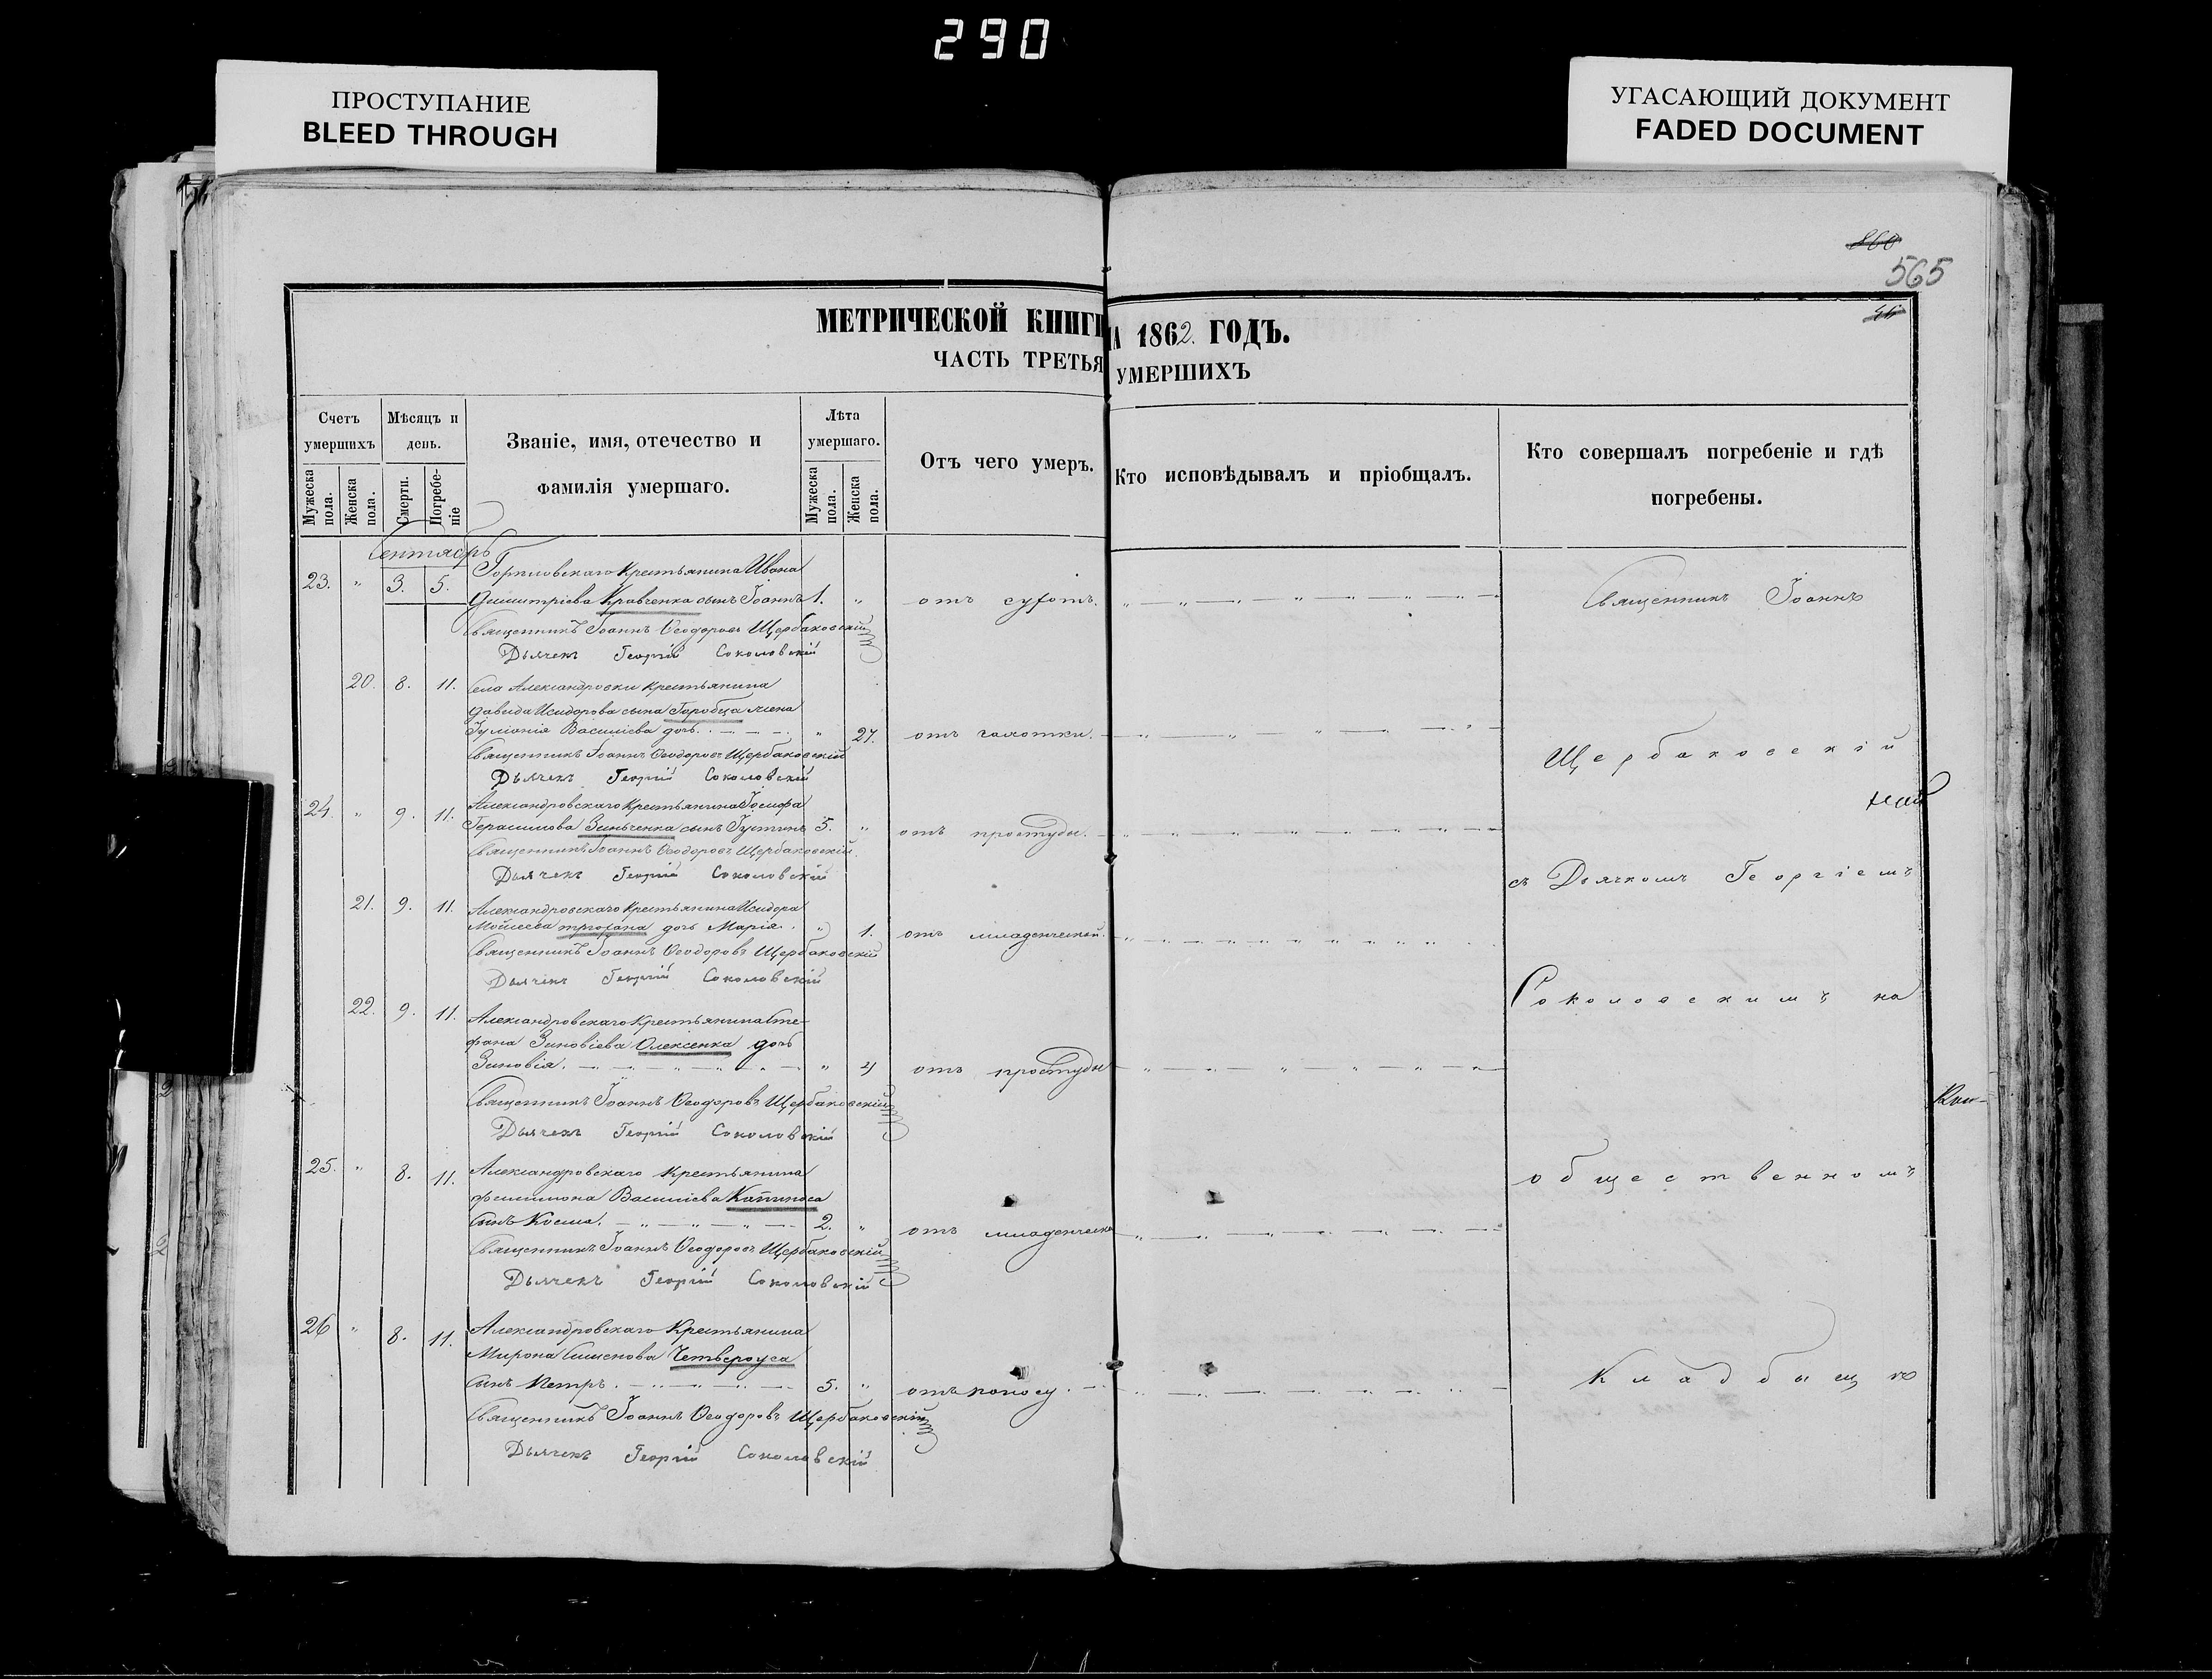 290
ПРОСТУПАНИЕ
BLEED THROUGH
УГАСАЮЩИЙ ДОКУМЕНТ
FADED DOCUMENT
565
МЕТРИЧЕСКОЙ КНИГИ
А 1862. ГОДЪ.
ЧАСТЬ ТРЕТЬЯ
УМЕРШИХЪ
Счетъ умершихъ
Мужеска пола.
Женска пола.
Мѣсяцъ и день.
Смерти.
Погребе-ніе
Званіе, имя, отечество и
фамилія умершаго.
Лѣта умершаго.
Мужеска пола.
Женска пола.
Отъ чего умеръ.
Кто исповѣдывалъ и пріобщалъ.
Кто совершалъ погребеніе и гдѣ
погребены.
Сентябрь
23. " 3. 5. крестьянина Ивана
Димитріева Кравченка сынъ Іоаннъ 1. " отъ
Священникъ Іоаннъ Ѳеодоровъ Щербаковскій
Дьячекъ Георгій Соколовскій
20. 8. 11. Села Александровки крестьянина
Давида Исидорова сына Горобца жена
Василіева дочь " 27. отъ чахотки.
Священникъ Іоаннъ Ѳеодоровъ Щербаковскій
Дьячекъ Георгій Соколовскій
24. " 9. 11. Александровскаго крестьянина Іосифа
Герасимова Зинченка сынъ Іустинъ 5. " отъ простуды.
Священникъ Іоаннъ Ѳеодоровъ Щербаковскій
Дьячекъ Георгій Соколовскій
21. 9. 11. Александровскаго крестьянина Исидора
Мойсеева дочь Марія. " 1. отъ младенческой.
Священникъ Іоаннъ Ѳеодоровъ Щербаковскій
Дьячекъ Георгій Соколовскій
22. 9. 11. Александровскаго крестьянина Сте-
фана Зиновіева Олексенка дочь
Зиновія. " отъ простуды
Священникъ Іоаннъ Ѳеодоровъ Щербаковскій
Дьячекъ Георгій Соколовскій
25. " 8. 11. Александровскаго крестьянина
Филимона Василіева
сынъ Косма. 2. " отъ младенческ
Священникъ Іоаннъ Ѳеодоровъ Щербаковскій
Дьячекъ Георгій Соколовскій
26 " 8. 11. Александровскаго крестьянина
Мирона Симеонова Четвероуса
сынъ Петръ. 5. " отъ поносу.
Священникъ Іоаннъ Ѳеодоровъ Щербаковскій
Дьячекъ Георгій Соколовскій
Священникъ Іоаннъ
Щербаковскій
съ Дьячкомъ Георгіемъ
Соколовскимъ на
общественномъ
Кладбищѣ